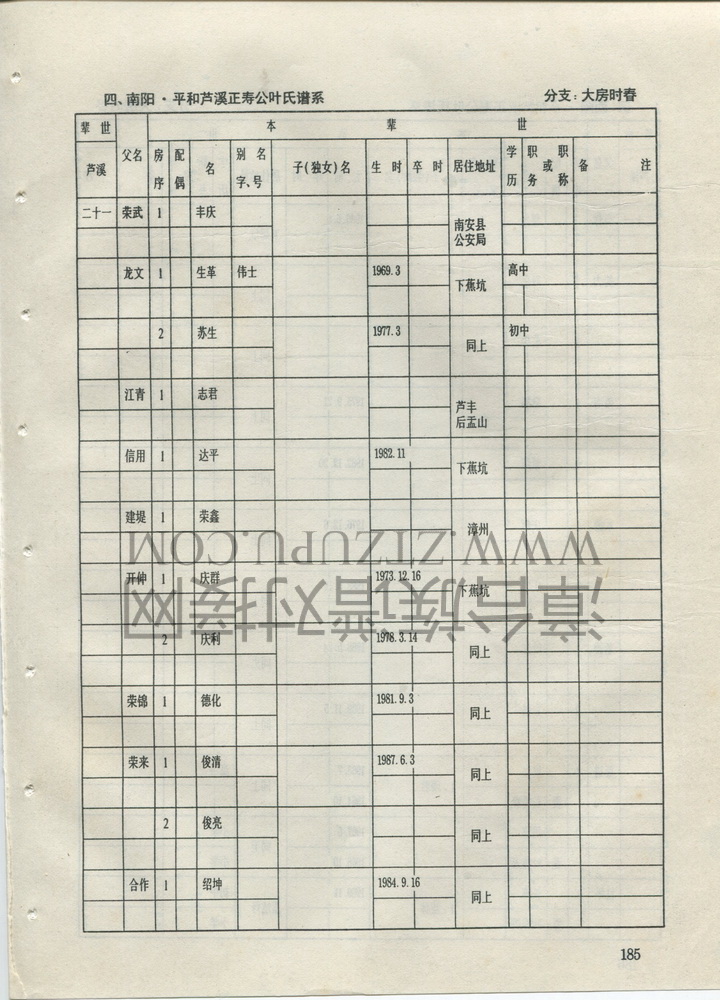 四、南阳·平和芦溪正寿公叶氏谱系 分支:大房时春
辈世 本辈世
芦溪 父名 房序 配偶 名 别名字、号 子(独女)名 生时 卒时 居住地址 学历 职或职务称 备注
二十一 荣武 1 丰庆 南安县公安局
龙文 1 生革 伟士 1969.3 下蕉坑 高中
2 苏生 1977.3 同上 初中
江青 1 志君 芦丰后盂山
信用 1 达平 1982.11 下蕉坑
建堤 1 荣鑫 漳州
开绅 1 庆群 1973.12.16 下蕉坑
2 庆利 1978.3.14 同上
荣锦 1 德化 1981.9.3 同上
荣来 1 俊清 1987.6.3 同上
2 俊亮 同上
合作 1 绍坤 1984.9.16 同上
185
WWW.ZIZUPU.COM
漳台族谱对接网